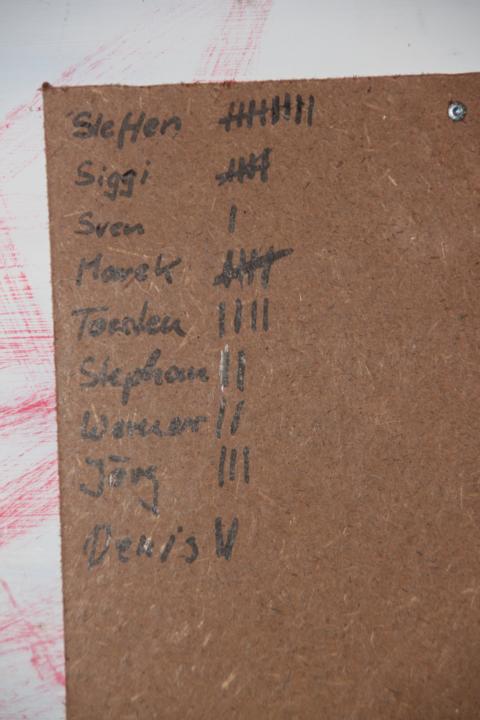 Steffen 𝍸 |||
Siggi 𝍸
Sven |
Marek 𝍸
Torsten ||||
Stephan ||
Werner ||
Jörg |||
Denis ||